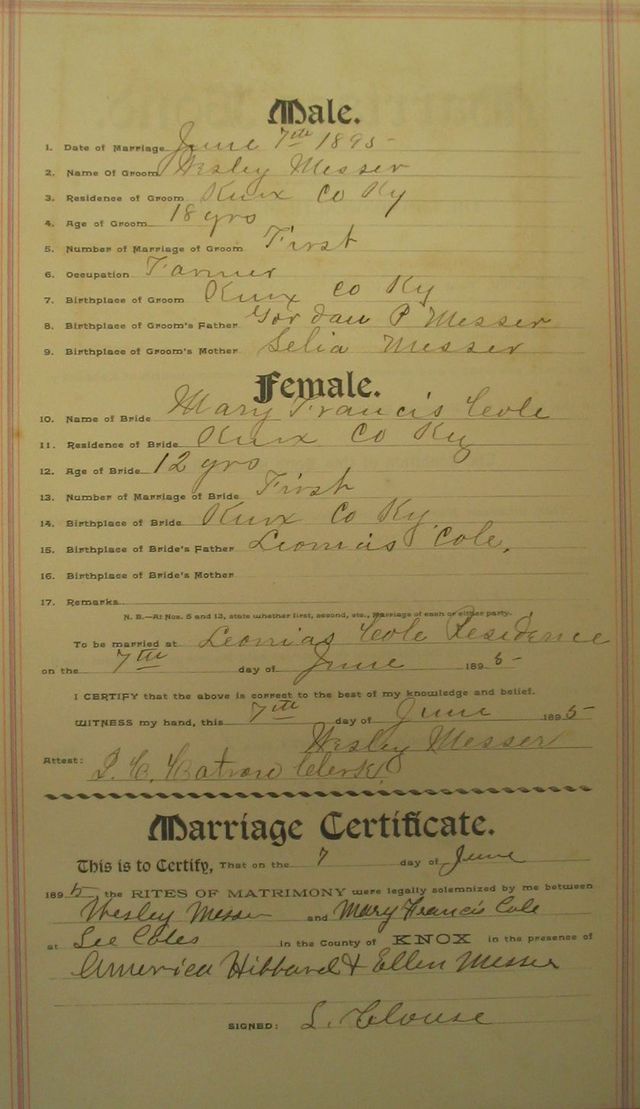 Male.
1. Date of Marriage June 7th 1895
2. Name Of Groom Wesley Messer
3. Residence of Groom Knox Co Ky
4. Age of Groom 18 yrs
5. Number of Marriage of Groom First
6. Occupation Farmer
7. Birthplace of Groom Knox Co Ky
8. Birthplace of Groom's Father Gordan P Messer
9. Birthplace of Groom's Mother Selia Messer
Female.
10. Name of Bride Mary Francis Cole
11. Residence of Bride Knox Co Ky
12. Age of Bride 12 yrs
13. Number of Marriage of Bride First
14. Birthplace of Bride Knox Co Ky.
15. Birthplace of Bride's Father Leonias Cole.
16. Birthplace of Bride's Mother
17. Remarks
N. B.—At Nos. 5 and 13, state whether first, second, etc., Marriage of each or either party.
To be married at Leonias Cole Residence
on the 7th day of June 1895
I CERTIFY that the above is correct to the best of my knowledge and belief.
WITNESS my hand, this 7th day of June 1895
Wesley Messer
Attest: Catron Clerk
Marriage Certificate.
This is to Certify, That on the 7 day of June
1895 the RITES OF MATRIMONY were legally solemnized by me between
Wesley Messer and Mary Francis Cole
at Lee Coles in the County of KNOX in the presence of
America Hibbard & Ellen Messer
SIGNED: L. Clouse